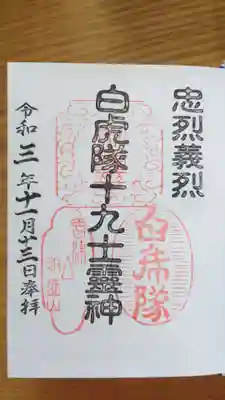 忠烈義烈
白虎隊十九士靈神
白帰隊
令和三年十一月十三日奉拝